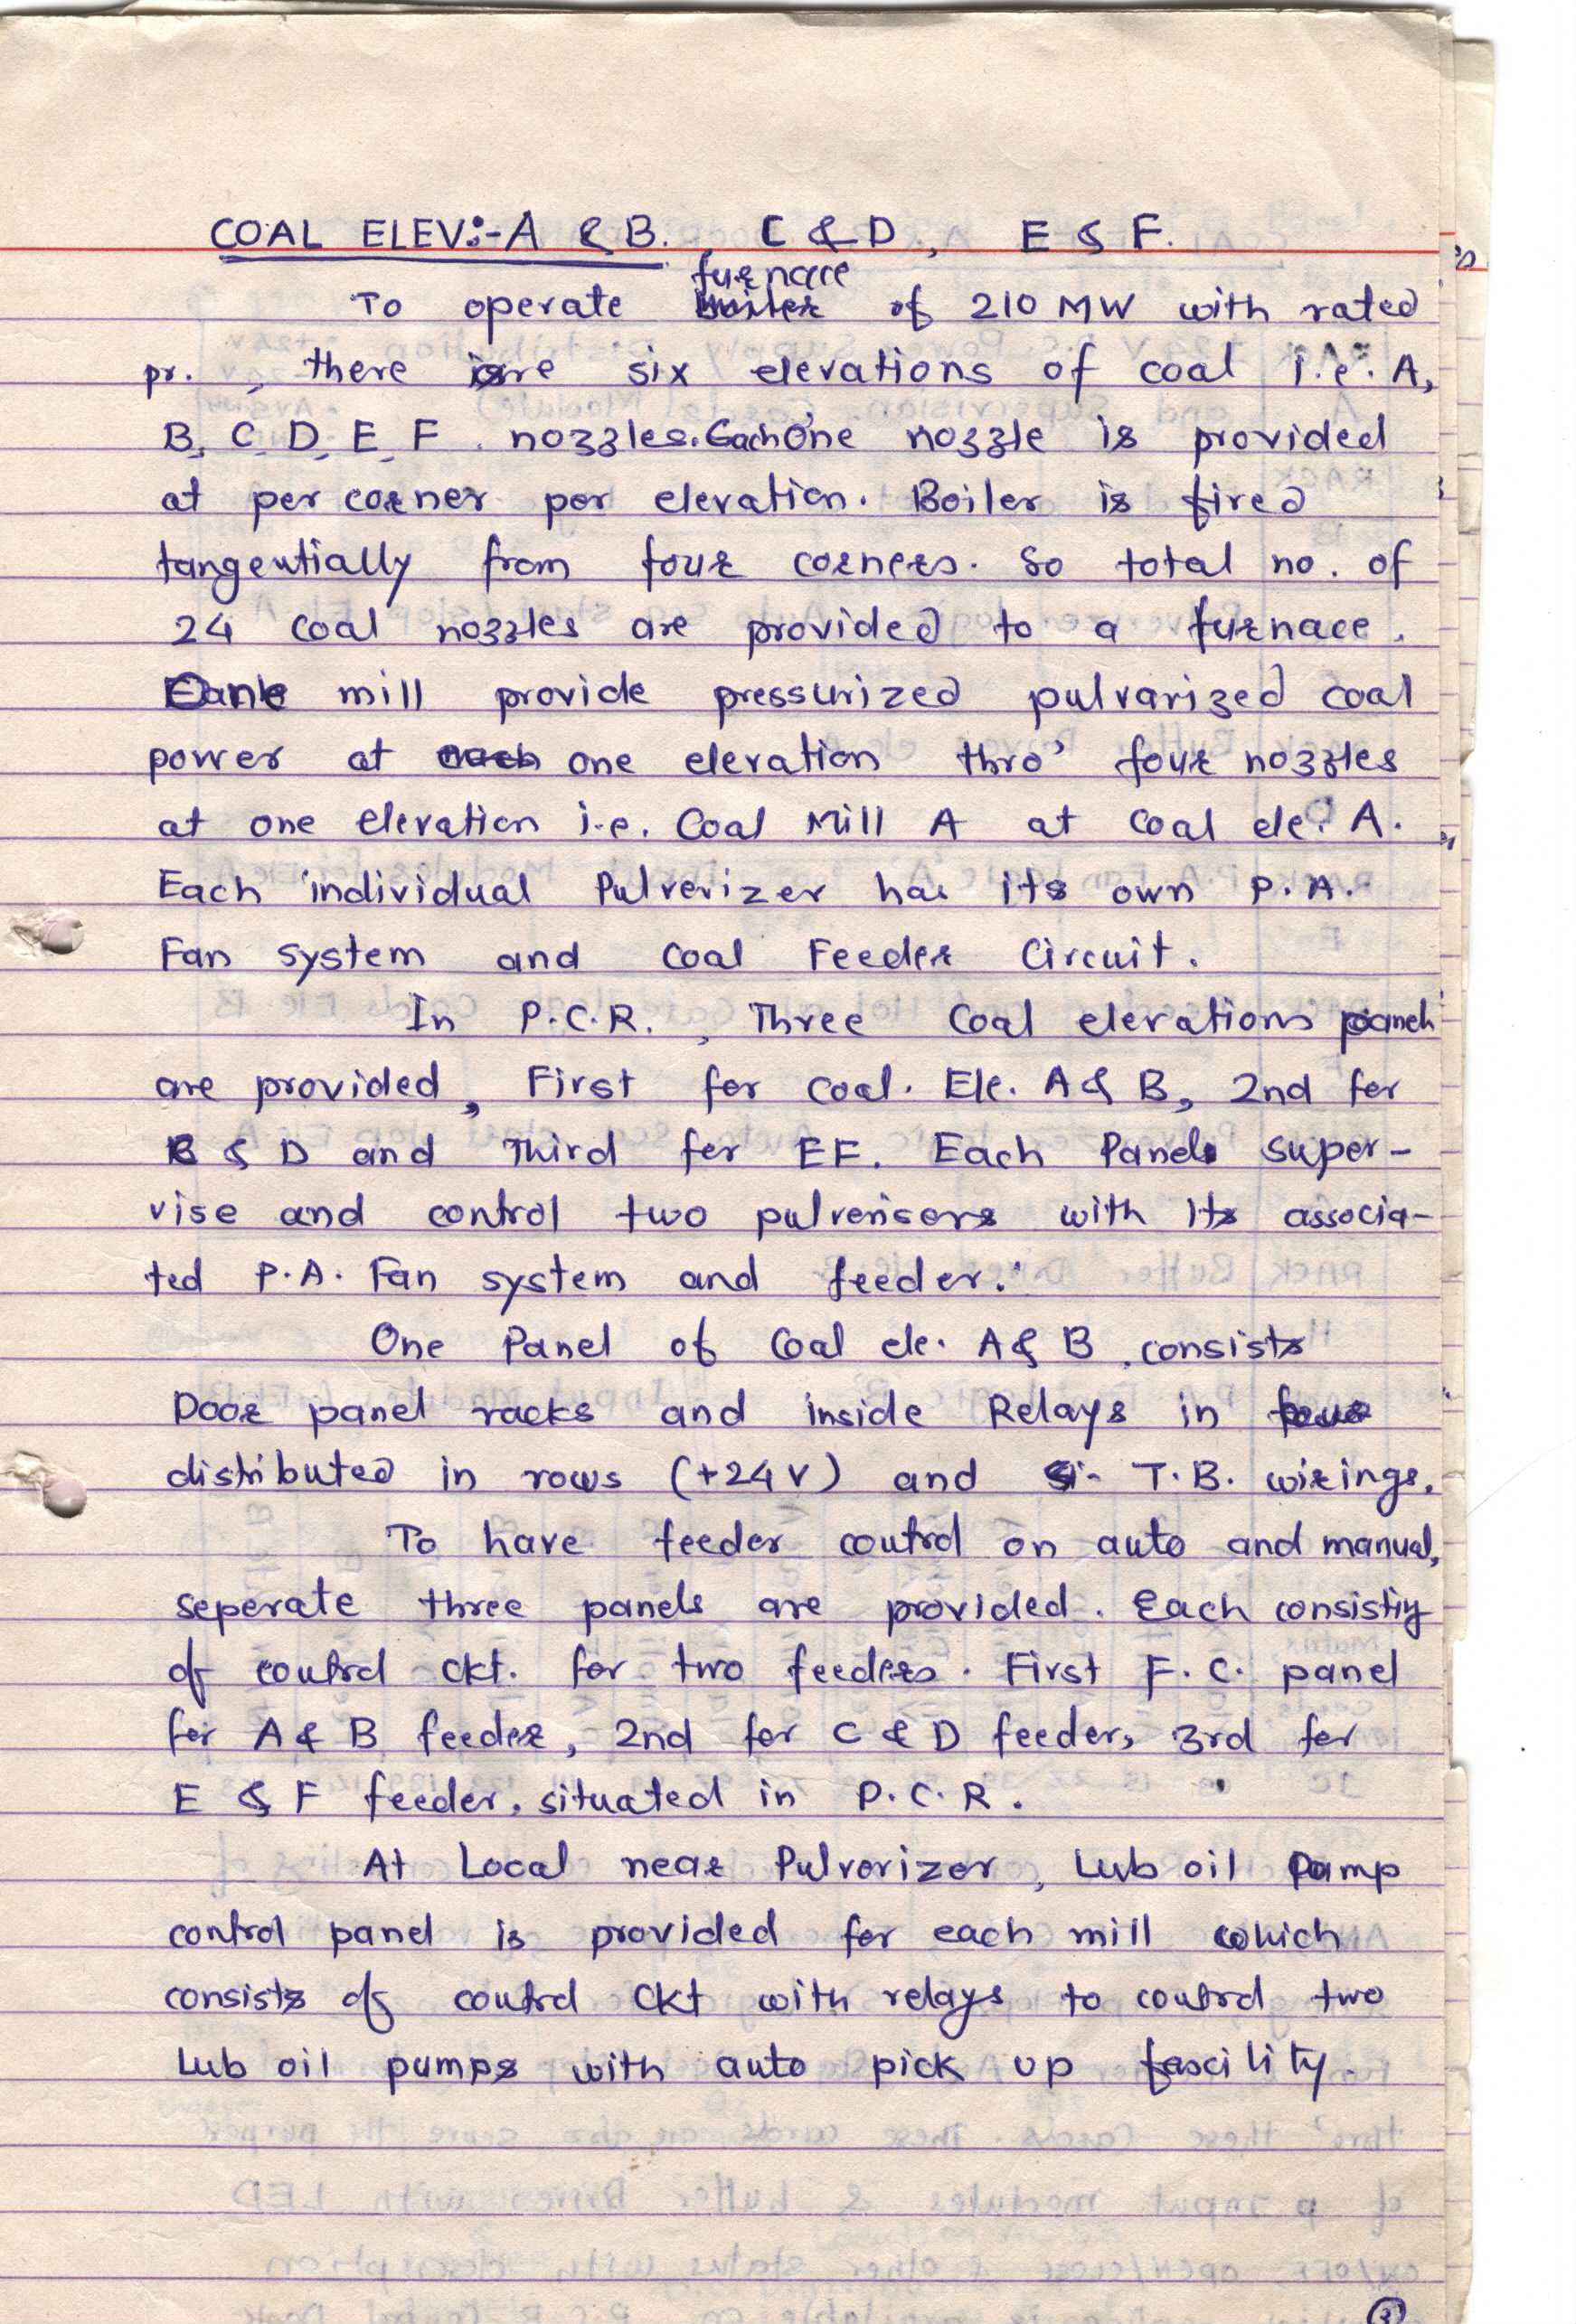 COAL ELEV:-A & B. C & D, E & F.
furnace
To operate of 210 MW with rated
pr. , there are six elevations of coal i.e. A,
B, C, D, E, F. nozzles. Each One nozzle is provided
at per corner per elevation. Boiler is fired
tangentially from four corners. So total no. of
24 coal nozzles are provided to a furnace.
mill provide pressurized pulvarized coal
power at one elevation thro' four nozzles
at one elevation i.e. Coal Mill A at coal ele. A.
Each individual Pulverizer has its own P.A.
Fan system and Coal Feeder Circuit.
In P.C.R., Three Coal elevations panels
are provided, First for Coal. Ele. A & B, 2nd for
& D and Third for EF. Each Panel super-
vise and control two pulverisers with its associa-
ted P.A. Fan system and feeder.
One Panel of Coal ele. A & B, consists
Door panel racks and inside Relays in
distributed in rows (+24V) and T.B. wirings.
To have feeder control on auto and manual,
seperate three panels are provided. Each consisting
of control ckt. for two feeders. First F.C. panel
for A & B feeder, 2nd for C & D feeder, 3rd for
E & F feeder, situated in P.C.R.
At Local near Pulverizer, Lub oil Pump
control panel is provided for each mill which
consists of control ckt with relays to control two
Lub oil pumps with auto pick up fascility.
3